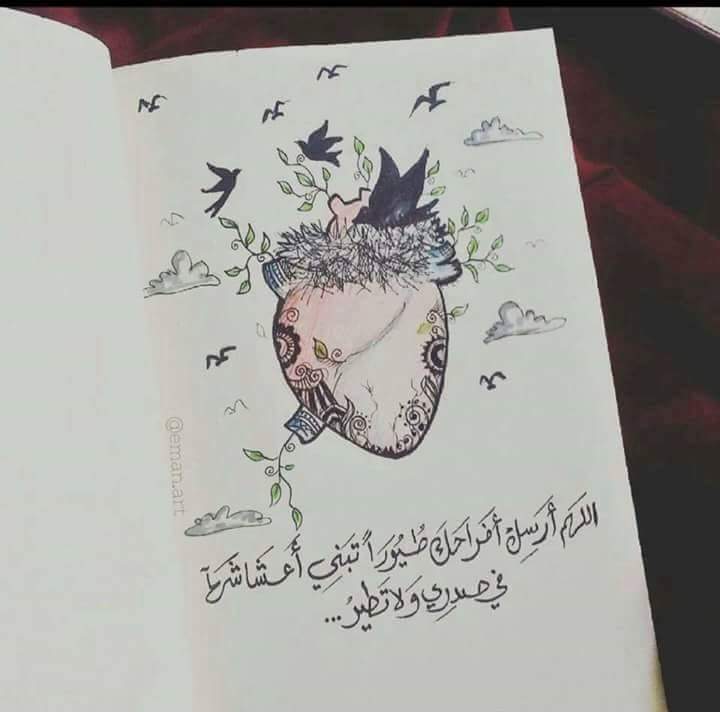 اللهم أرسل أفراحك طُيُوراً تبني أعشاشها
في صدري ولا تطيرُ...
@eman.art